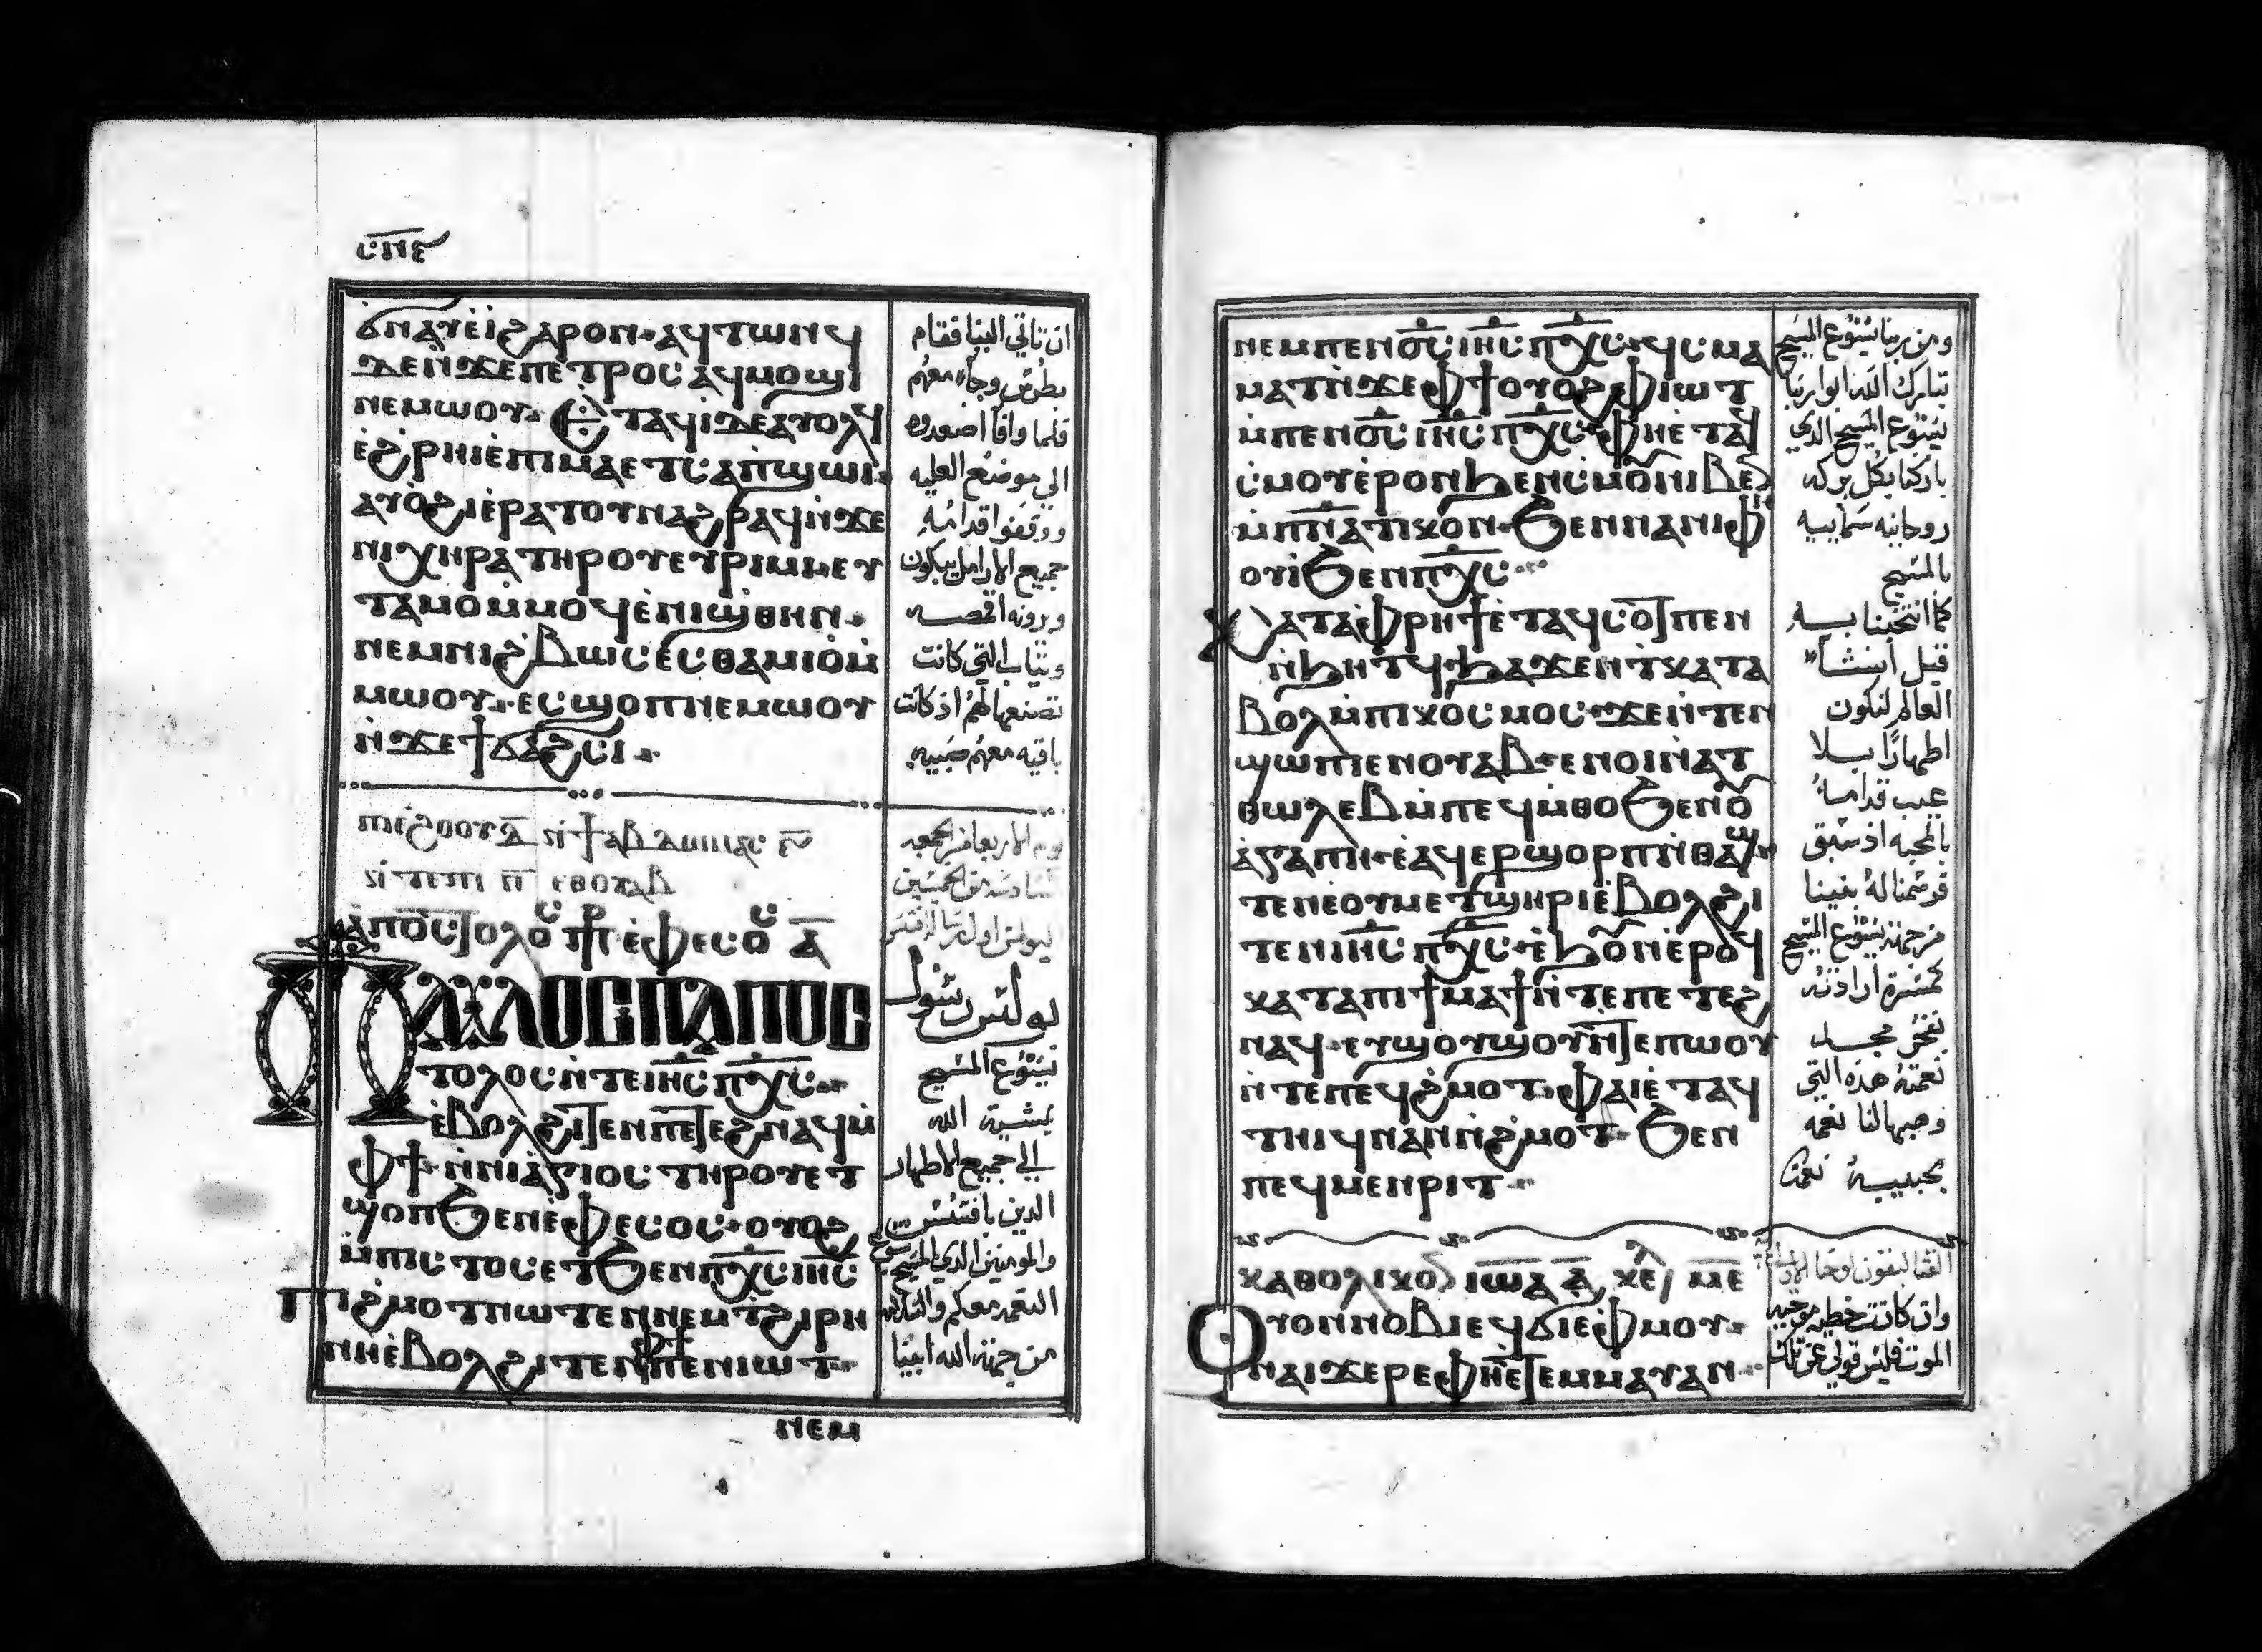 ⲥⲡⲉ
ϭⲛⲁⲩⲉ̀ⲓ ϩⲁⲣⲟⲛ ⲁϥⲧⲱⲛϥ
ⲇⲉ ⲛ̀ϫⲉ ⲡⲉⲧⲣⲟⲥ ⲁϥⲙⲟϣⲓ
ⲛⲉⲙⲱⲟⲩ ⲉⲧⲁϥⲓ̀ ⲇⲉ ⲁⲩⲟⲗϥ
ⲉ̀ϩⲣⲏⲓ ⲉ̀ⲡⲓⲙⲁ ⲉⲧⲥⲁⲡϣⲱⲓ
ⲁⲩⲟ̀ϩⲓ ⲉ̀ⲣⲁⲧⲟⲩ ⲛⲁϩⲣⲁϥ ⲛ̀ϫⲉ
ⲛⲓⲭⲏⲣⲁ ⲧⲏⲣⲟⲩ ⲉⲩⲣⲓⲙⲓ ⲉⲩ
ⲧⲁⲙⲟ ⲙ̀ⲙⲟϥ ⲉ̀ⲛⲓϣⲑⲏⲛ
ⲛⲉⲙ ⲛⲓϩⲃⲱⲥ ⲉ̀ⲥⲑⲁⲙⲓⲟ̀ ⲙ̀
ⲙⲱⲟⲩ ⲉⲥϣⲟⲡ ⲛⲉⲙⲱⲟⲩ
ⲛ̀ϫⲉ ϯϭⲁϩⲥⲓ
ان تاتي الينا فقام
بطرس وجاء معهم
فلما وافا اصعدوه
الي موضع العليه
ووقفوا قدامه
جميع الارامل يبكون
ويرونه اقمصه
وثياب التي كانت
تصنعها لهم اذ كانت
باقيه معهم ضبيه
ⲡⲓⲉϩⲟⲟⲩ ⲇ̅ ⲛ̀ϯⲉⲃⲇⲟⲙⲁⲥ
ⲛ̀ⲧⲉ ϯ ⲡ̅ ⲉⲑⲟⲩⲁⲃ
ⲁ̀ⲡⲟⲥⲧⲟⲗⲟⲥ ⲡⲣ ⲉ̀ⲫⲉⲥⲟⲥ ⲁ̅
ⲡⲁⲩⲗⲟⲥ ⲡⲁⲡⲟⲥ
ⲧⲟⲗⲟⲥ ⲛ̀ⲧⲉ ⲓⲏⲥ ⲡⲭⲥ
ⲉ̀ⲃⲟⲗ ϩⲓⲧⲉⲛ ⲡⲉⲧⲉϩⲛⲁϥ ⲙ̀
ⲫϯ ⲛ̀ⲛⲓⲁ̀ⲅⲓⲟⲥ ⲧⲏⲣⲟⲩ ⲉⲧ
ϣⲟⲡ ϧⲉⲛ ⲉ̀ⲫⲉⲥⲟⲥ ⲟⲩⲟϩ
ⲙ̀ⲡⲓⲥⲧⲟⲥ ⲉⲧϧⲉⲛ ⲡⲭⲥ ⲓⲏⲥ
ⲡⲓϩⲙⲟⲧ ⲛⲱⲧⲉⲛ ⲛⲉⲙ ⲧϩⲓⲣⲏ
ⲛⲏ ⲉ̀ⲃⲟⲗ ϩⲓⲧⲉⲛ ⲫϯ ⲡⲉⲛⲓⲱⲧ
بولس رسول
يسوع المسيح
بمشية الله
الي جميع الاطهار
الذين بافسس
والمومنين الذي بالمسيح يسوع
النعمه معكم والسلامه
من جهة الله ابينا
ⲛⲉⲙ
ⲛⲉⲙ ⲡⲉⲛⲟ̅ⲥ̅ ⲓⲏⲥ ⲡⲭⲥ ϥⲥⲙⲁ
ⲙⲁⲧ ⲛ̀ϫⲉ ⲫϯ ⲟⲩⲟϩ ⲫⲓⲱⲧ
ⲙ̀ⲡⲉⲛⲟ̅ⲥ̅ ⲓⲏⲥ ⲡⲭⲥ ⲫⲏⲉⲧⲁϥ
ⲥ̀ⲙⲟⲩ ⲉ̀ⲣⲟⲛ ϧⲉⲛ ⲥⲙⲟⲩ ⲛⲓⲃⲉⲛ
ⲙ̀ⲡⲛ̅ⲁⲧⲓⲕⲟⲛ ϧⲉⲛ ⲛⲁ ⲛⲓⲫⲏ
ⲟⲩⲓ̀ ϧⲉⲛ ⲡⲭⲥ
ⲕⲁⲧⲁ ⲫⲣⲏϯ ⲉ̀ⲧⲁϥⲥⲟⲧⲡⲉⲛ
ⲛ̀ϧⲏⲧϥ ϧⲁϫⲉⲛ ⲧ̀ⲕⲁⲧⲁ
ⲃⲟⲗⲏ ⲙ̀ⲡⲓⲕⲟⲥⲙⲟⲥ ϫⲉ ⲛ̀ⲧⲉⲛ
ϣⲱⲡⲓ ⲉⲛⲟⲩⲁⲃ ⲉⲛⲟⲓ ⲛ̀ⲁⲧ
ⲑⲱⲗⲉⲃ ⲙ̀ⲡⲉϥⲙ̀ⲑⲟ ϧⲉⲛ ⲟⲩ
ⲁ̀ⲅⲁⲡⲏ ⲉ̀ⲁϥⲉⲣϣⲟⲣⲡ ⲛ̀ⲑⲁϣ
ⲧⲉⲛ ⲉ̀ⲟⲩⲙⲉⲧϣⲏⲣⲓ ⲉ̀ⲃⲟⲗ ϩⲓ
ⲧⲉⲛ ⲓⲏⲥ ⲡⲭⲥ ⲉ̀ϧⲟⲩⲛ ⲉ̀ⲣⲟϥ
ⲕⲁⲧⲁ ⲡⲓϯⲙⲁϯ ⲛ̀ⲧⲉ ⲡⲉⲧⲉϩ
ⲛⲁϥ ⲉⲩϣⲟⲩϣⲟⲩ ⲛ̀ⲧⲉ ⲡⲱⲟⲩ
ⲛ̀ⲧⲉ ⲡⲉϥϩ̀ⲙⲟⲧ ⲫⲁⲓ ⲉ̀ⲧⲁϥ
ⲧⲏⲓϥ ⲛⲁⲛ ⲛ̀ϩ̀ⲙⲟⲧ ϧⲉⲛ
ⲡⲉϥⲙⲉⲛⲣⲓⲧ
ومن ربنا يسوع المسيح
تبارك الله ابو ربنا
يسوع المسيح الذي
باركنا بكل بركه
روحانيه سمايية
بالمسيح
كما انتخبنا به
قبل انشاء
العالم لنكون
اطهارًا بلا
عيب قدامه
بالمحبه اذ سبق
فوسمنا له بنينا
من جهة يسوع المسيح
كمسرة ارادته
بفخر مجد
نعمته هذه التي
وهبها لنا نعمه
بحبيبه
ⲕⲁⲑⲟⲗⲓⲕⲟⲛ ⲓⲱⲁ ⲁ̅ ⲕⲉ ⲙⲉ
ⲟⲩⲟⲛ ⲛⲟⲃⲓ ⲉϥϭⲓ ⲉ̀ⲫⲙⲟⲩ
ⲛⲁⲓϫⲉⲣⲉ ⲫⲏⲉⲧⲉⲙⲙⲁⲩ ⲁⲛ
وان كانت خطيه موجبه
الموت فليس قولي عن تلك